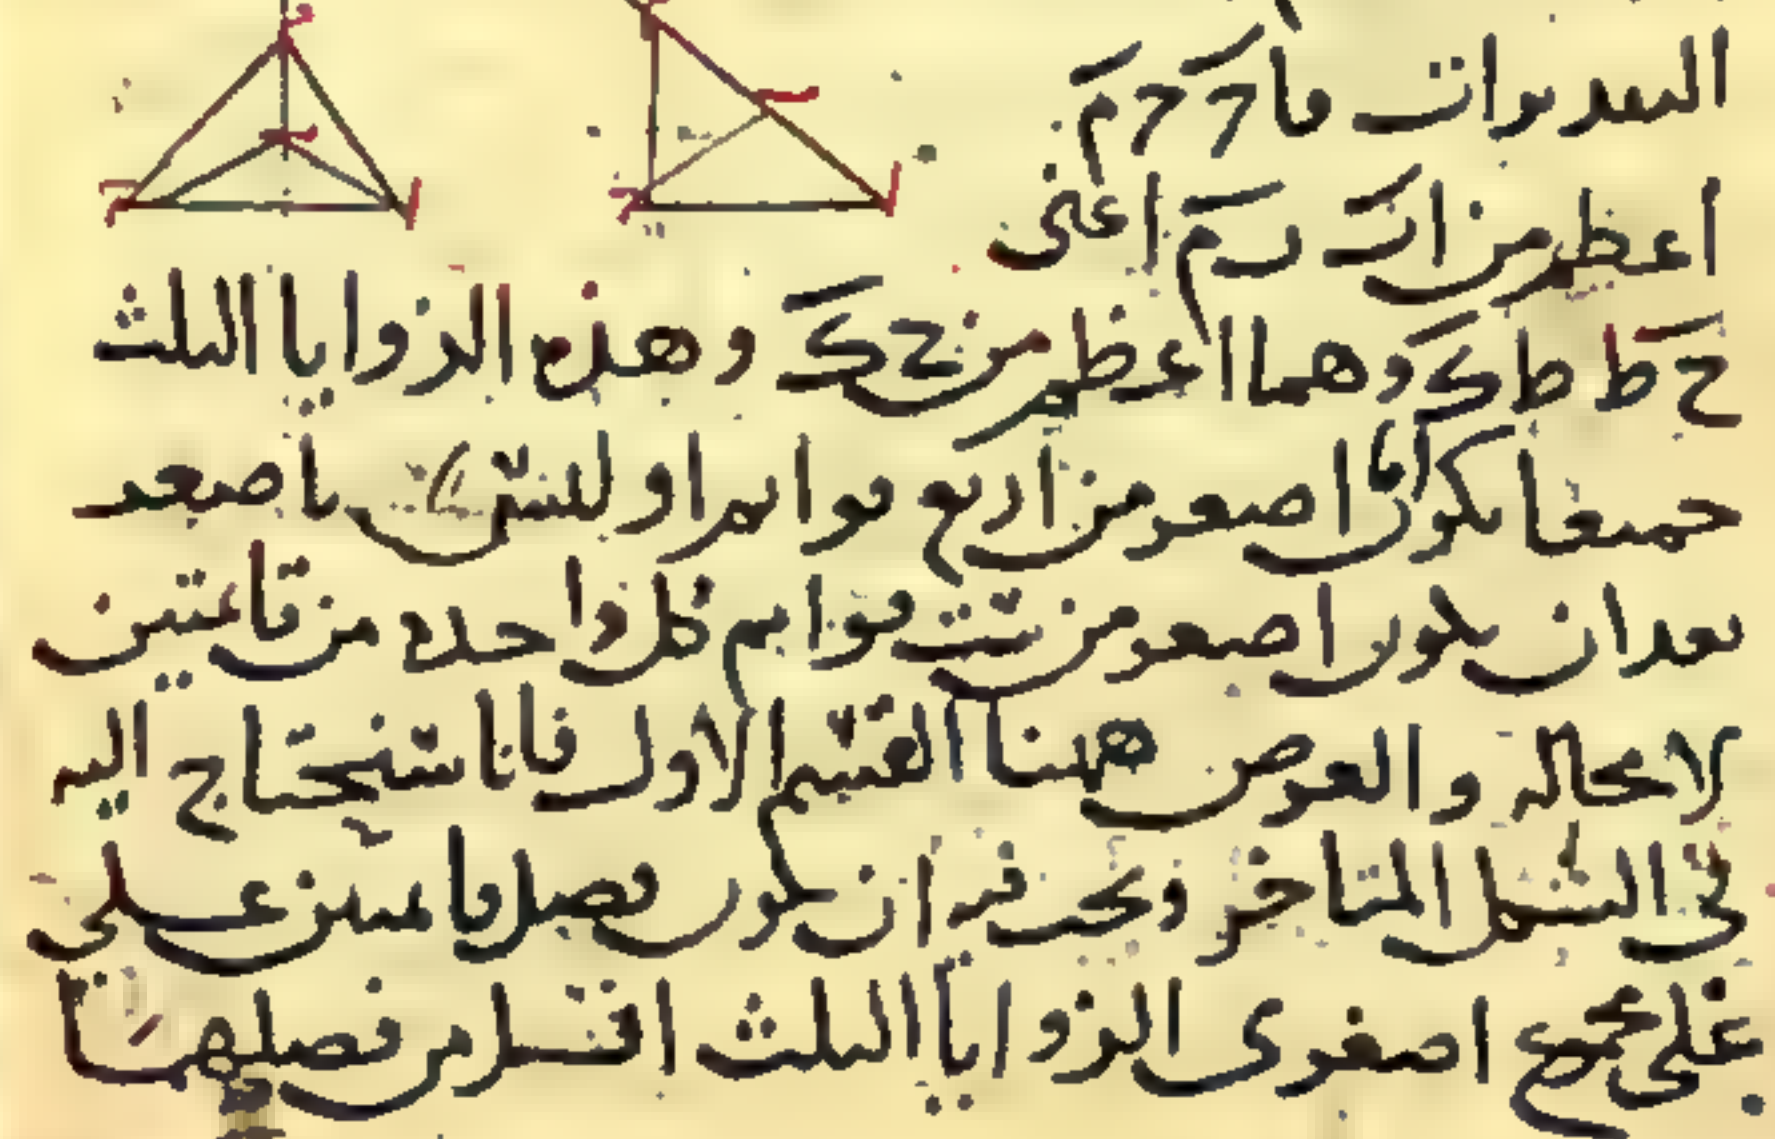 التقديرات فا ح ح م
اعظم من ا ك ر م اعنى
ح ط ط ك وهما اعظم من ح ك وهذه الزوايا الثلث
جميعا يكون اما اصغر من اربع قوايم او ليس باصغر
بعد ان يكون اصغر من ست قوايم كل واحده من قائمتين
لا محاله والغرض ههنا القسم الاول فانا سنحتاج اليه
فى الشكل المتاخر ويجب فيه ان يكون فصل قائمتين على
على مجموع اصغرى الزوايا الثلث اقل من فصلهما